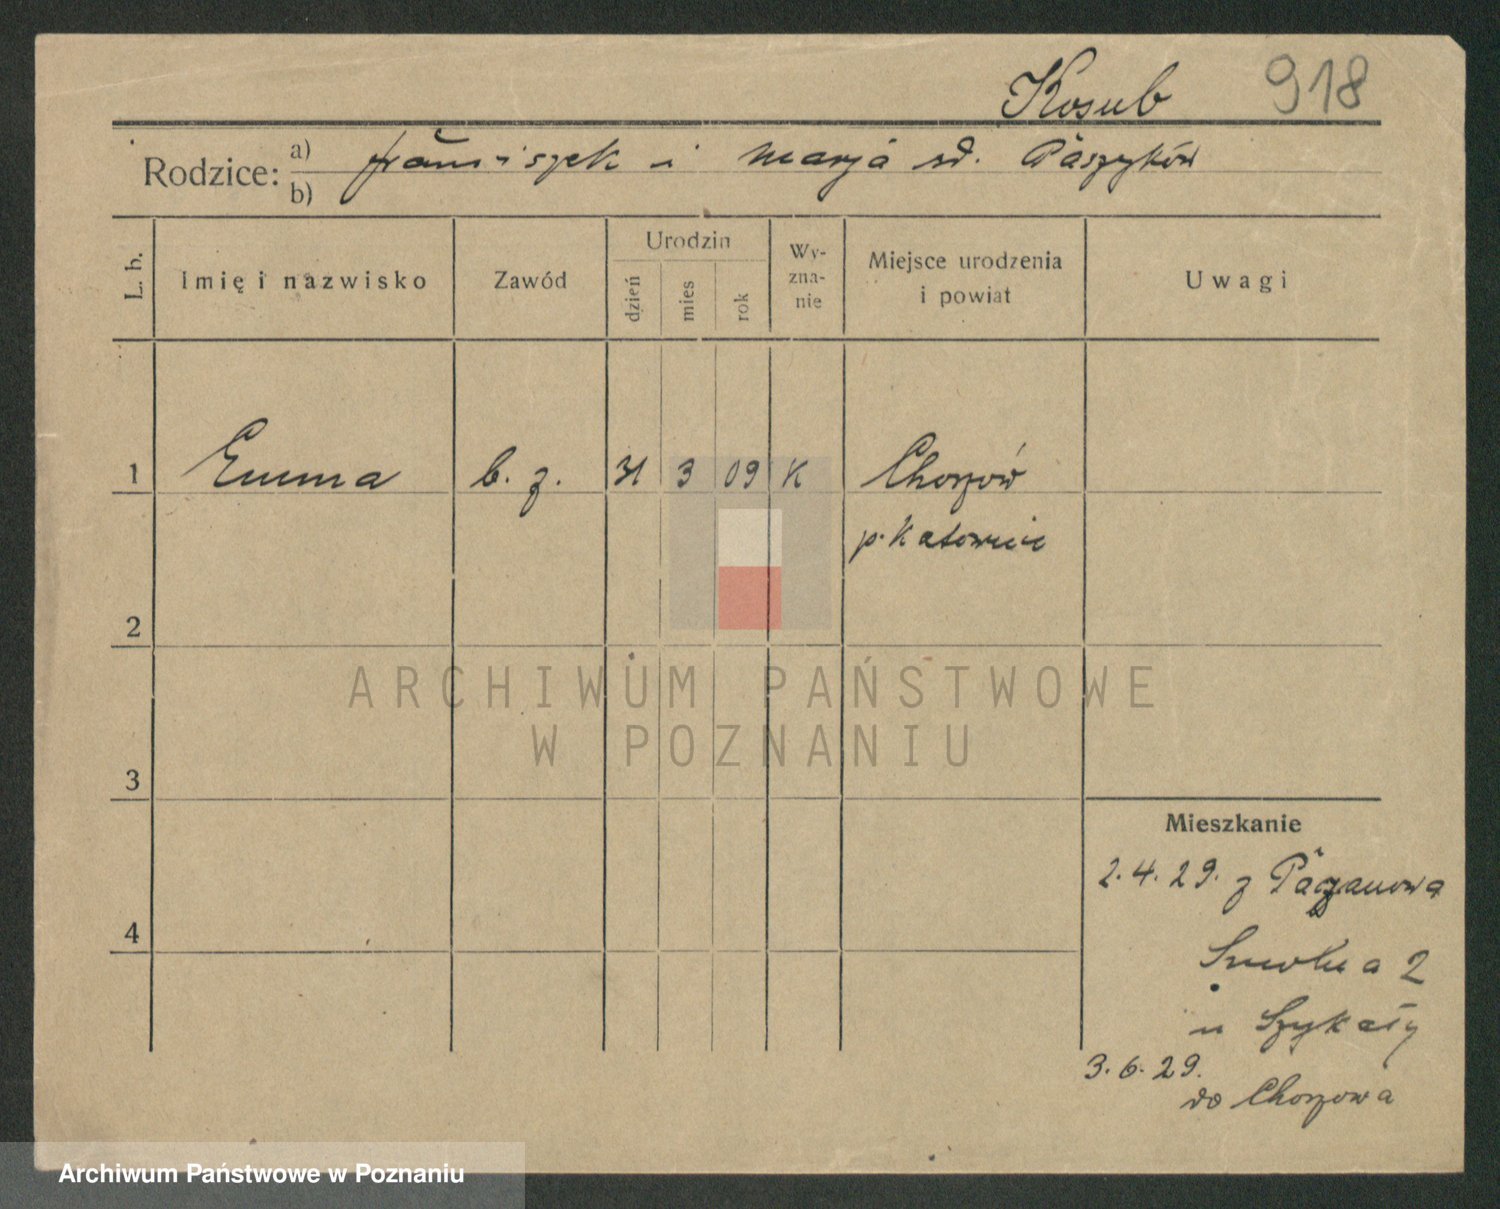 Kosub 918
Rodzice: a) b) Franciszek i Marja sd. Paszyków
L. b.
Imię i nazwisko
Zawód
Urodzin
dzień
mies
rok
Wy-
zna-
nie
Miejsce urodzenia
i powiat
Uwagi
1 Emma b. z. 31 3 09 K Chorzów
p. Katowice
2
3
4
Mieszkanie
2.4.29. z
2
u Szykały
3.6.29.
do Chorzowa
ARCHIWUM PAŃSTWOWE
W POZNANIU
Archiwum Państwowe w Poznaniu